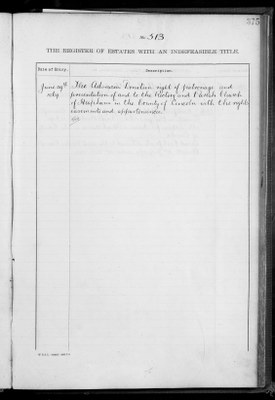 No. 313
375
THE REGISTER OF ESTATES WITH AN INDEFEASIBLE TITLE.
Date of Entry.
Description.
June 29th
The Advowson Donation right of patronage and
presentation of and to the Rectory and Parish Church
of in the County of Lincoln with the rights
and appurtenances